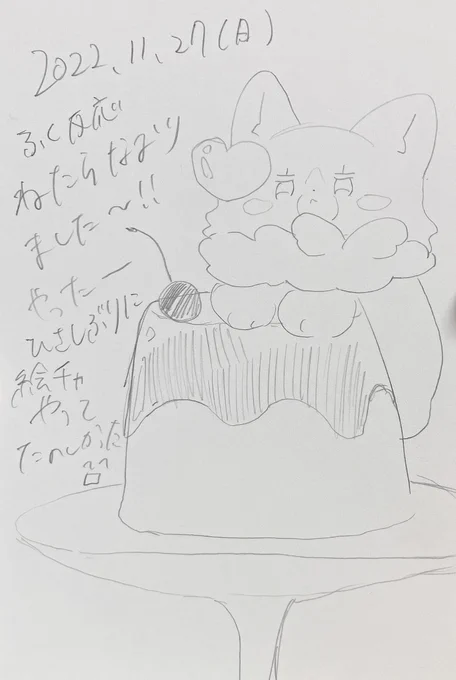 2022.11.27(日)
ふく反応
ねたらなおり
ました〜!!
やったー
ひさしぶりに
絵チャ
やって
たのしかった